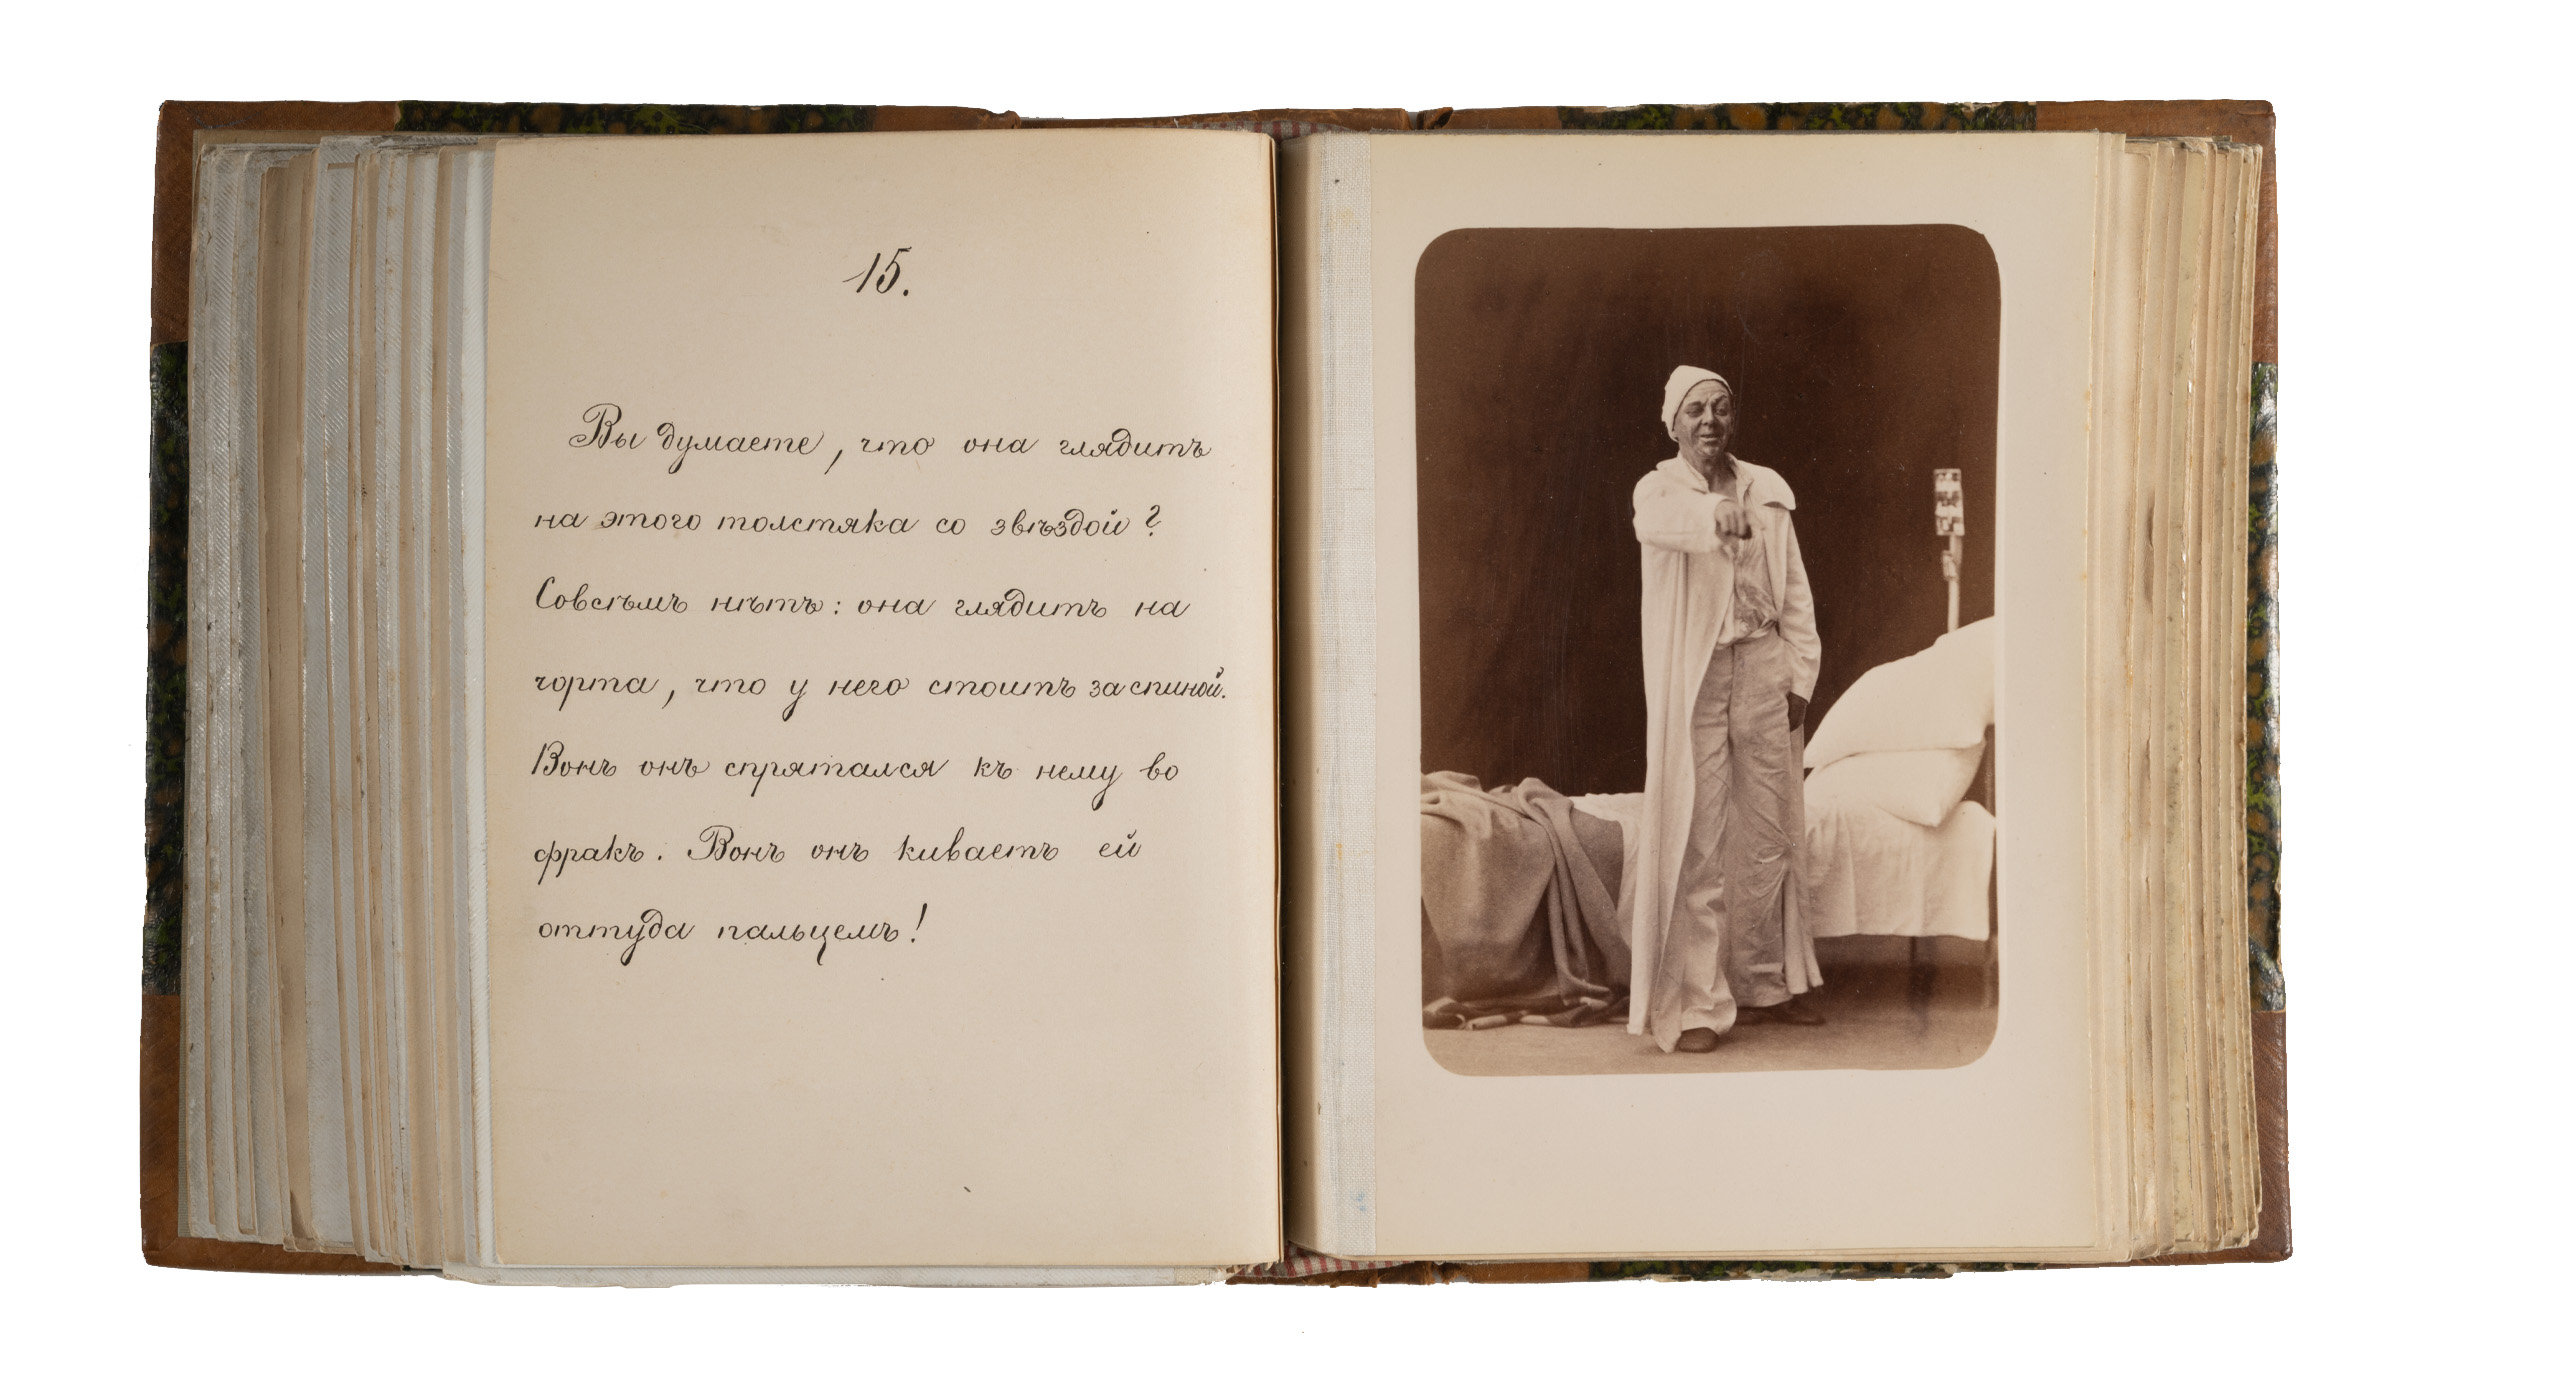 15.
Вы думаете, что она глядитъ
на этого толстяка со звѣздой?
Совсѣмъ нѣтъ: она глядитъ на
чорта, что у него стоитъ за спиной.
Вонъ онъ спрятался къ нему во
фракъ. Вонъ онъ киваетъ ей
оттуда пальцемъ!